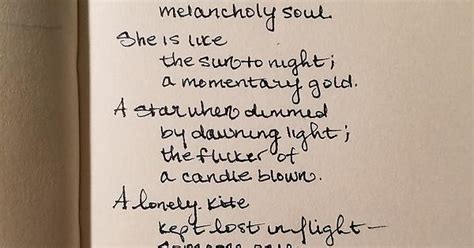 melancholy soul.
She is like
the sun to night;
a momentary gold.
A star when dimmed
by dawning light;
the flicker of
a candle blown.
A lonely kite
kept lost in flight—
someone